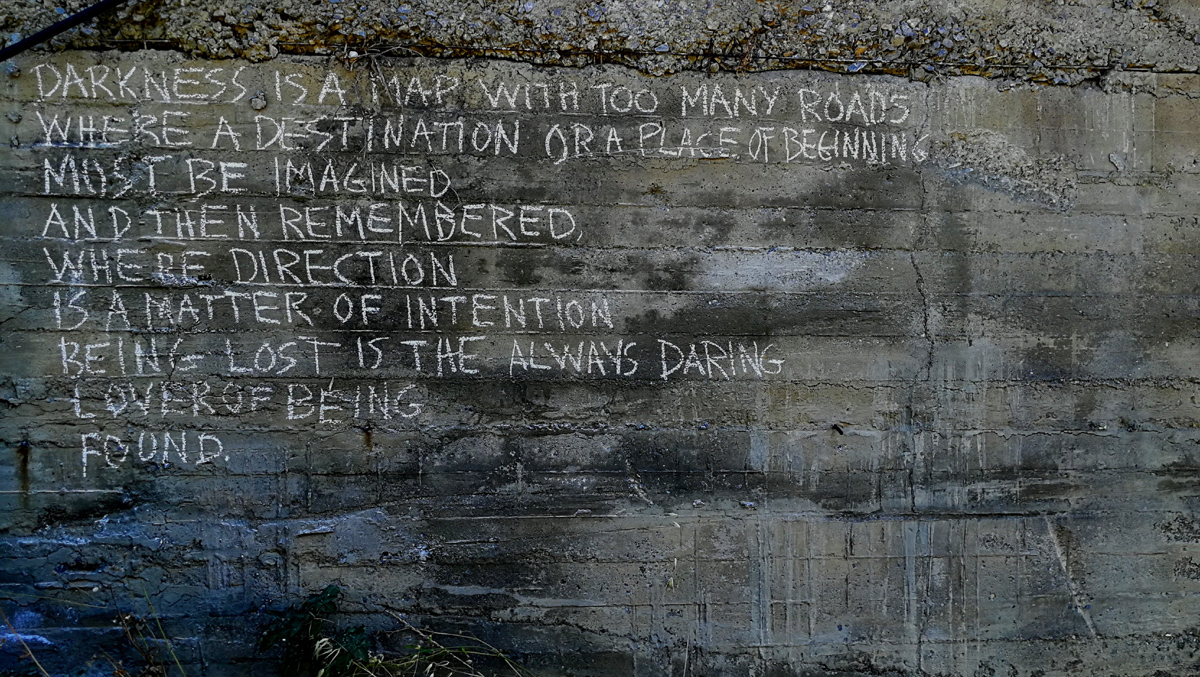 DARKNESS IS A MAP WITH TOO MANY ROADS
WHERE A DESTINATION OR A PLACE OF BEGINNING
MUST BE IMAGINED
AND THEN REMEMBERED,
WHERE DIRECTION
IS A MATTER OF INTENTION
BEING LOST IS THE ALWAYS DARING
LOVER OF BEING
FOUND.